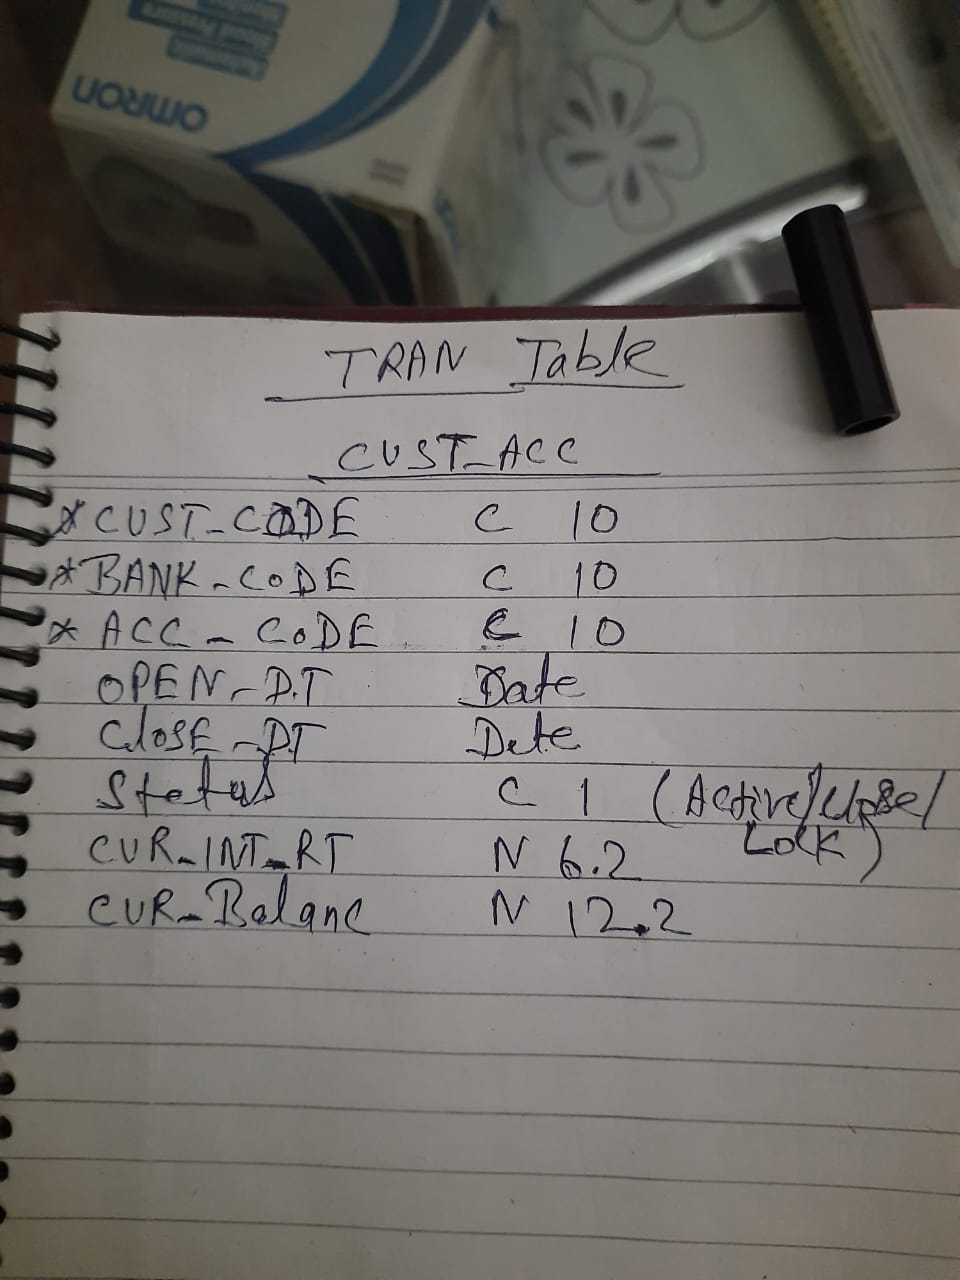 OMRON
Automatic
Blood Pressure
Monitor
TRAN Table
CUST_ACC
* CUST_CODE C 10
* BANK_CODE C 10
* ACC_CODE C 10
OPEN_DT Date
Close_DT Date
Status C 1 (Active/Close/
Lock)
CUR_INT_RT N 6.2
CUR_Balanc N 12.2